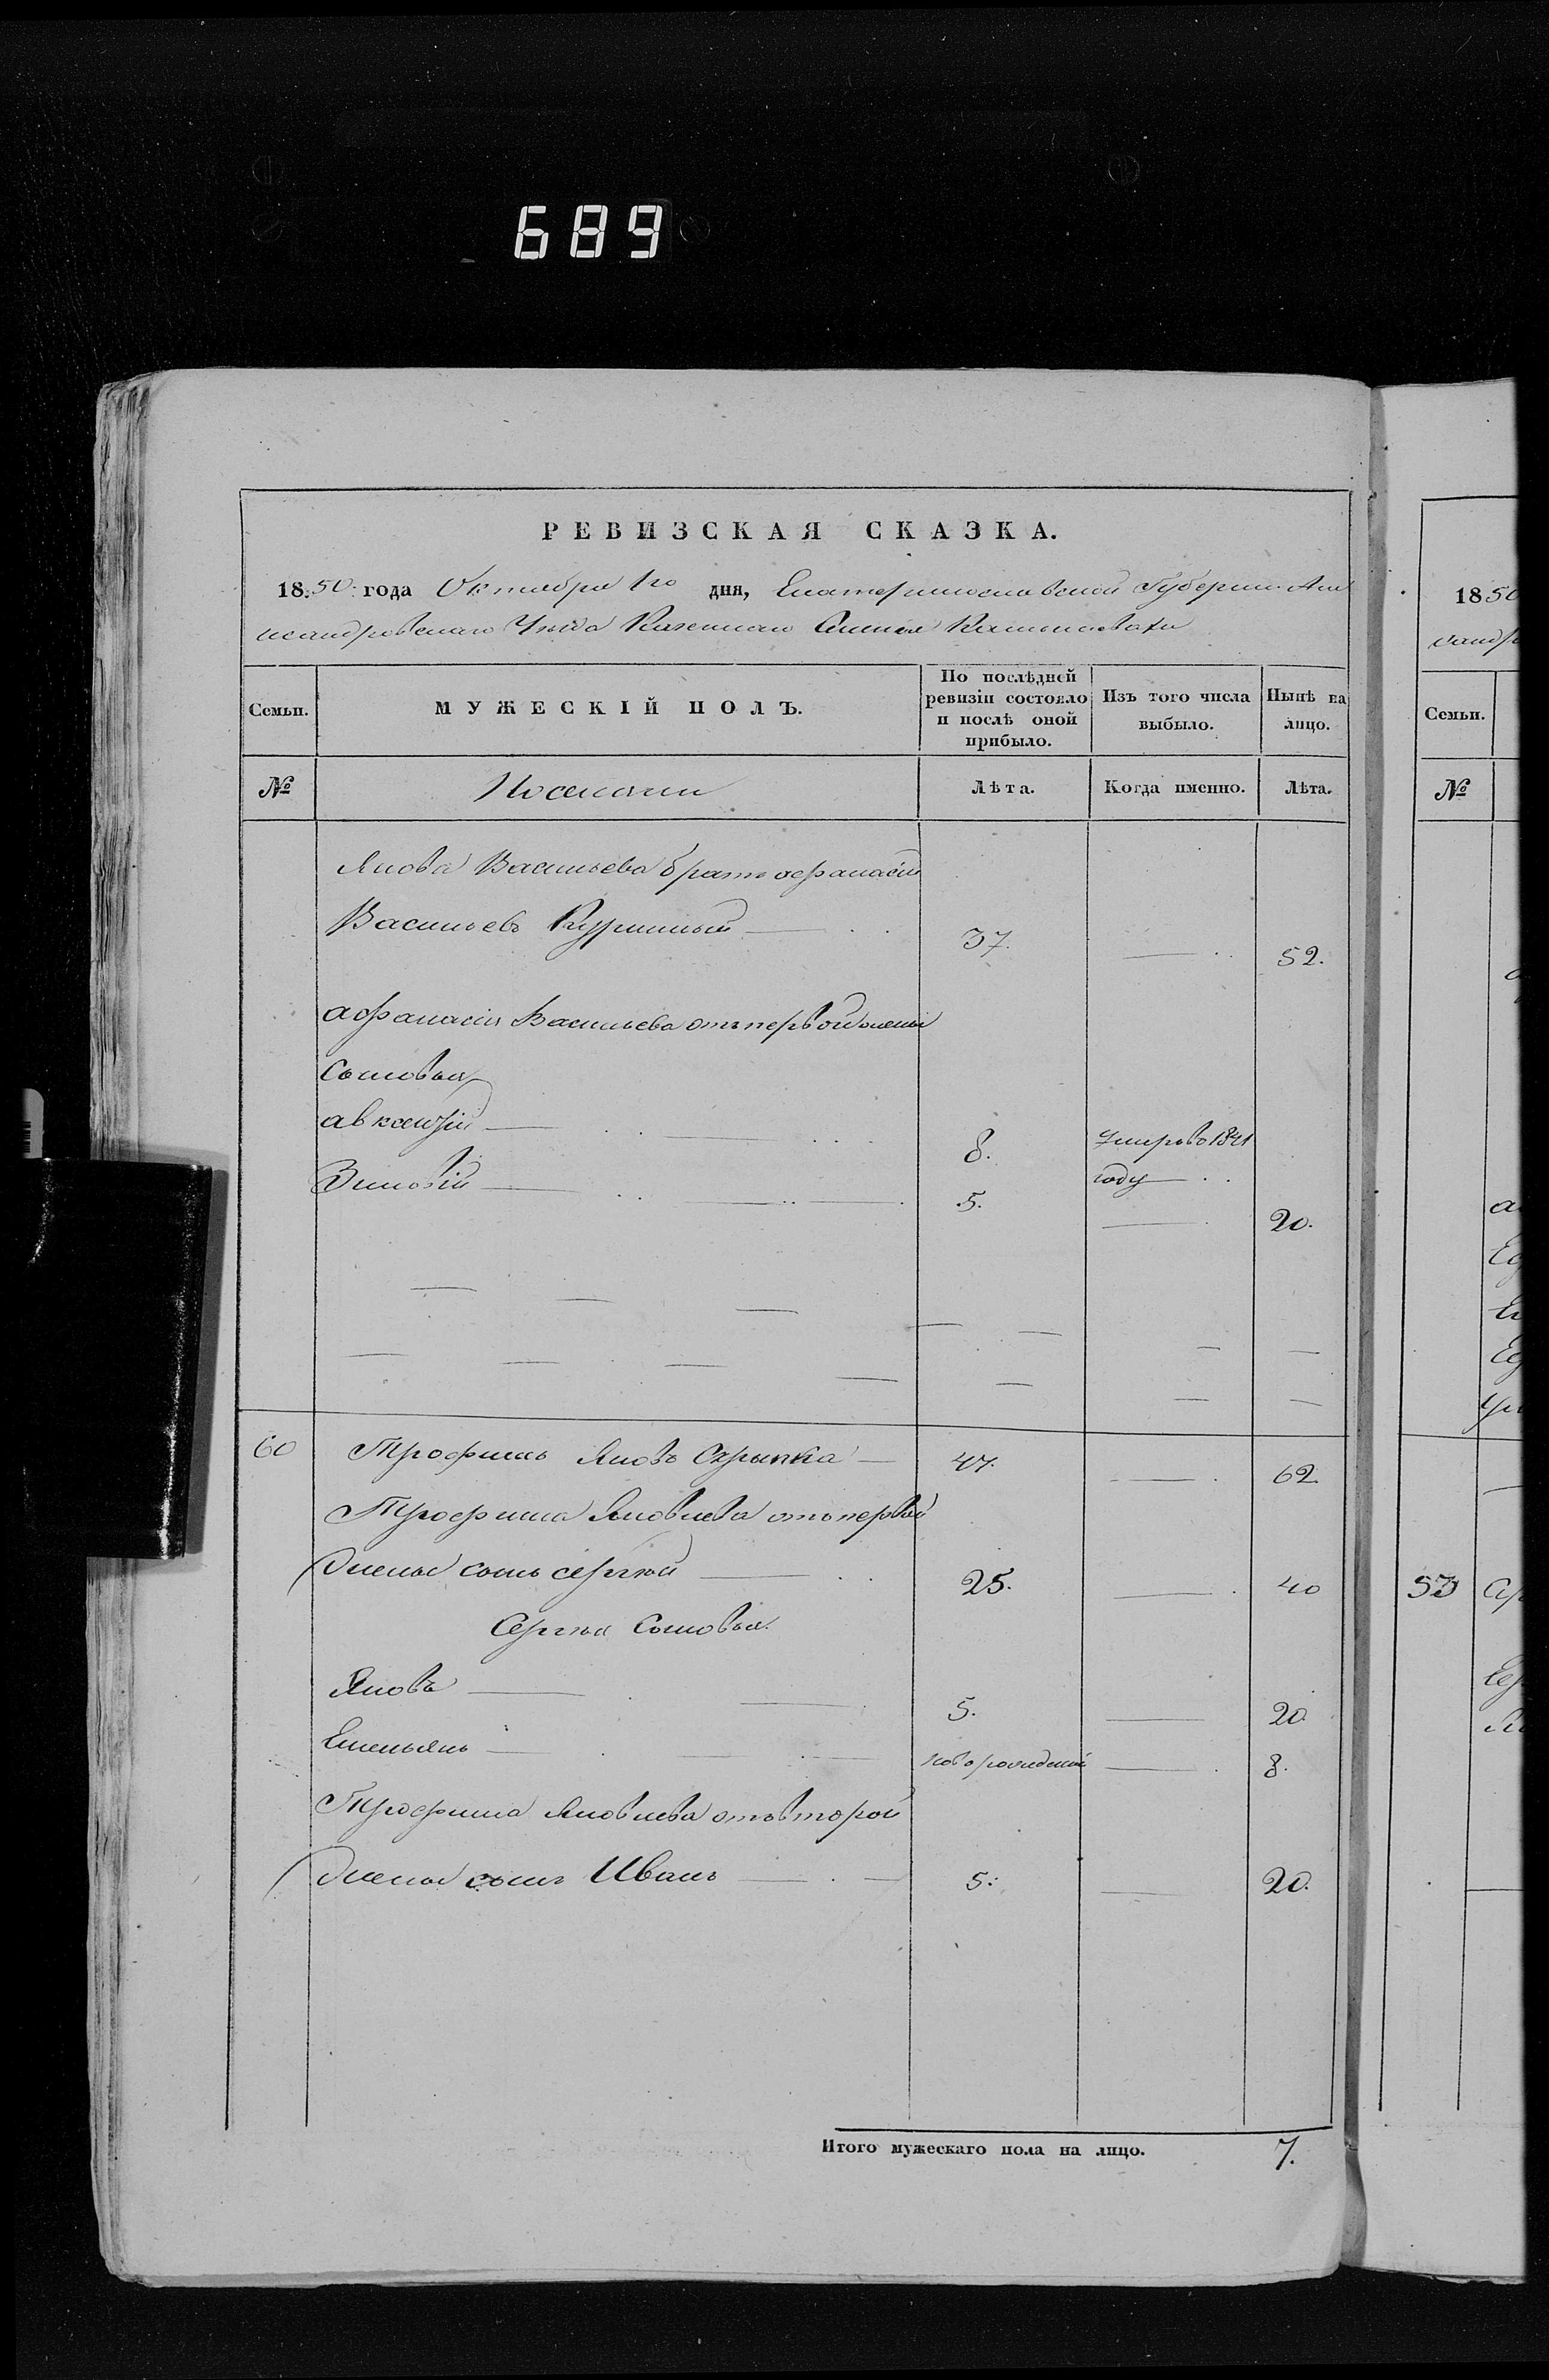 689
РЕВИЗСКАЯ СКАЗКА.
18.50. года Октября 1го дня, Екатеринославской Губернии Але
ксандровскаго Уѣзда Казеннаго Селения
Семьи.
МУЖЕСКІЙ ПОЛЪ.
По послѣдней ревизіи состояло и послѣ оной прибыло.
Изъ того числа выбыло.
Нынѣ на лицо.
№
Поселяни
Лѣта.
Когда именно.
Лѣта.
Якова Васильева братъ афанасій
Васильевъ Куринный 37. 52.
афанасія Васильева отъ первой жены
Сыновья
авксентій 8. Умеръ въ 1841
Зиновій 5. году 20.
60 Трофимъ Яковъ Скрыпка 47. 62.
Трофима Яковлева отъ первой
жены сынъ сергѣй 25. 40
Сергѣя Сыновья.
Яковъ 5. 20.
Емельянъ новорожденый 8.
Трофима Яковлева отъ второй
жены сынъ Иванъ 5. 20.
Итого мужескаго пола на лицо. 7.
1850
Семьи.
№
53